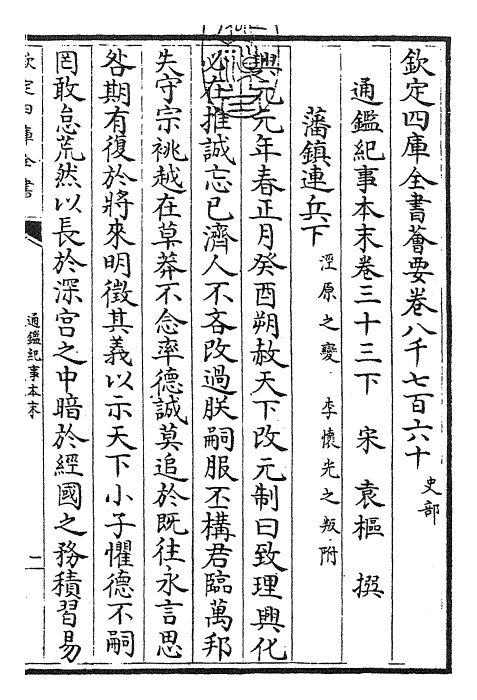 欽定四庫全書薈要卷八千七百六十
史部
通鑑紀事本末卷三十三下
宋
袁樞
撰
藩鎮連兵下
涇原之變
李懷光之叛附
興元元年春正月癸酉朔赦天下改元制曰致理興化
必在推誠忘己濟人不吝改過朕嗣服丕構君臨萬邦
失守宗祧越在草莽不念率德誠莫追於既往永言思
咎期有復於將來明徵其義以示天下小子懼德不嗣
罔敢怠荒然以長於深宮之中暗於經國之務積習易
欽定四庫全書
通鑑紀事本末
二